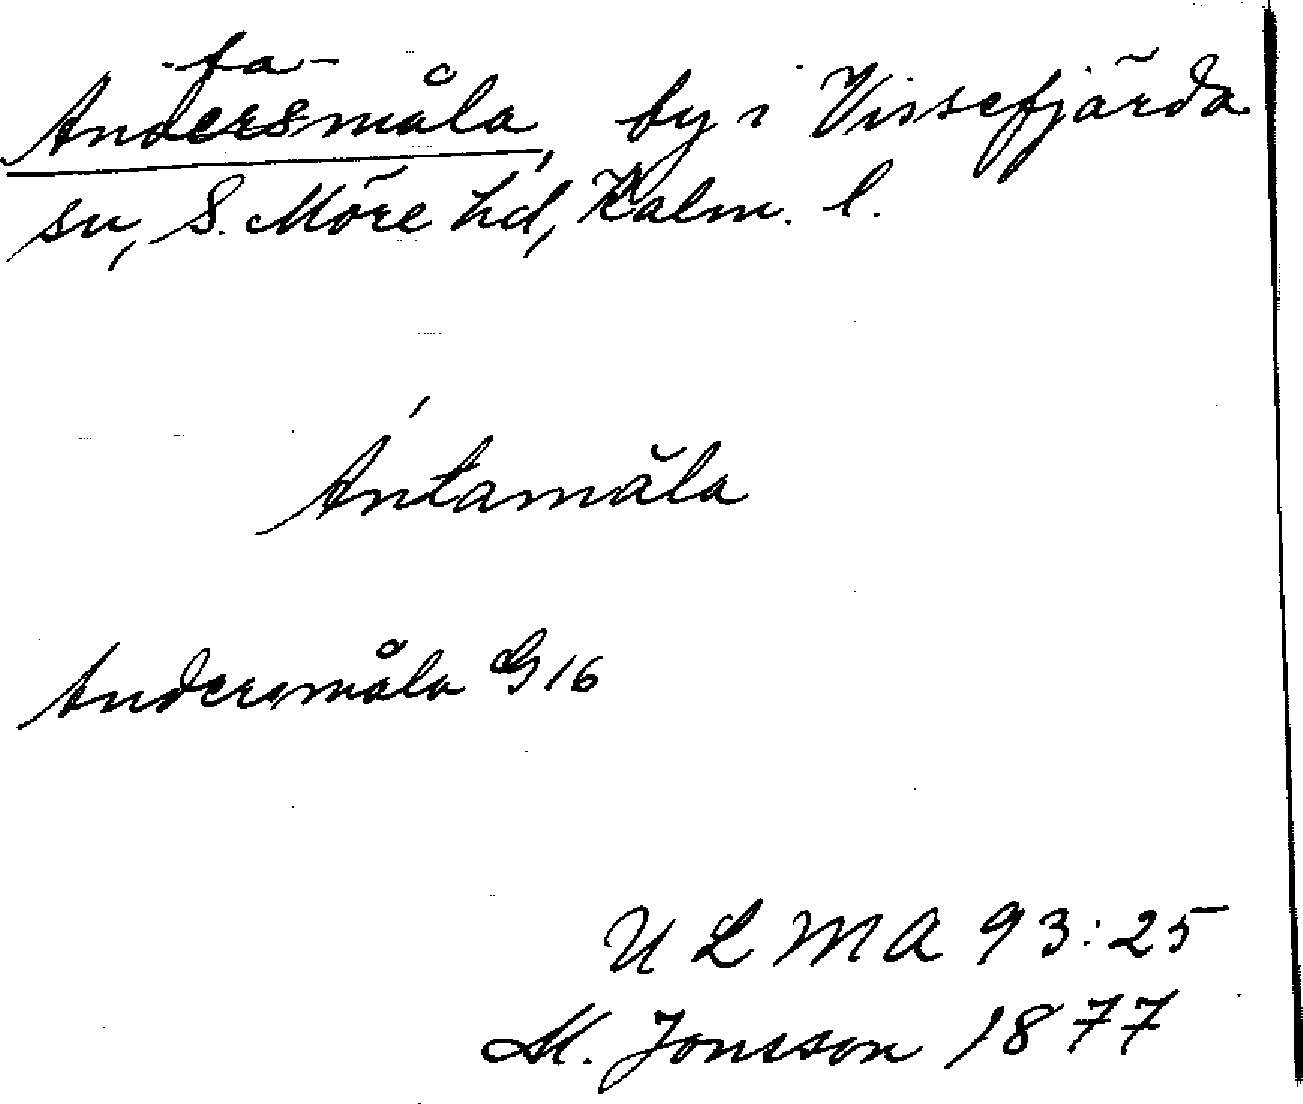 -ta-
Andersmåla, by i Vissefjärda
sn, S. Möre hd, Kalm. l.
Antamåla
Andersmåla G 16
ULMA 93:25
M. Jonsson 1877